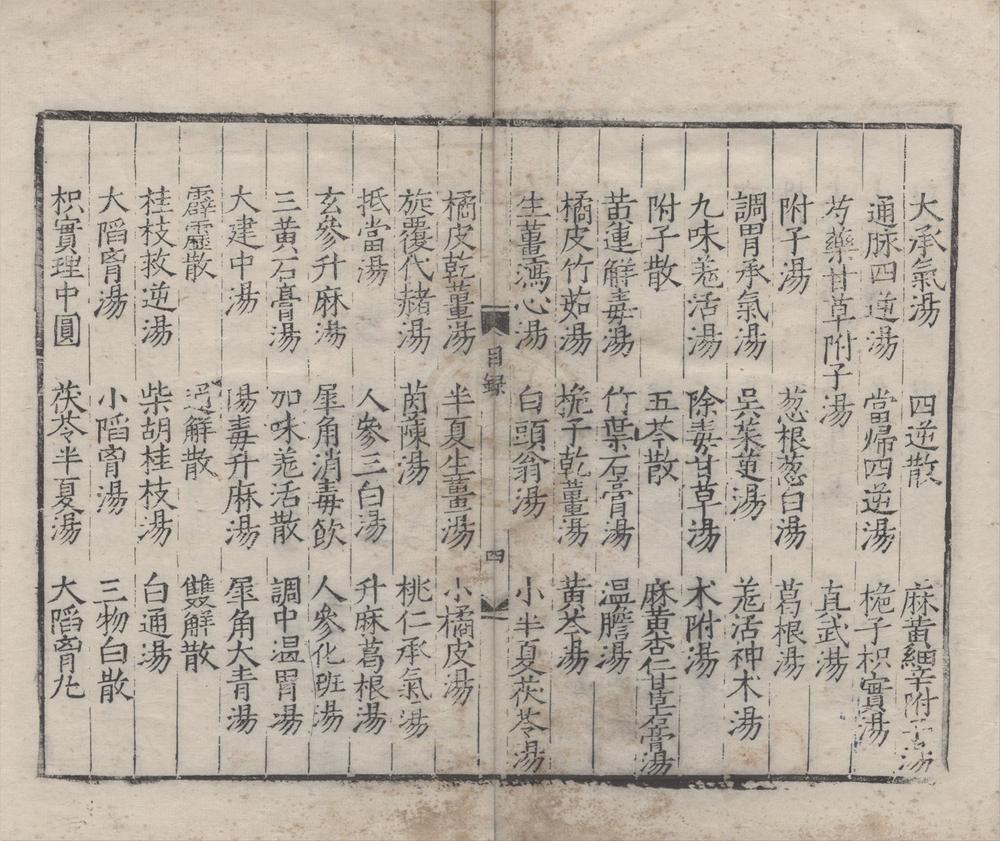 大承氣湯　四逆散　麻黃細辛附子湯
通脉四逆湯　當歸四逆湯　梔子枳實湯
芍藥甘草附子湯　真武湯
附子湯　葱根葱白湯　葛根湯
調胃承氣湯　吳茱萸湯　羗活神术湯
九味羗活湯　除毒甘草湯　术附湯
附子散　五苓散　麻黃杏仁甘草石膏湯
黃連解毒湯　竹葉石膏湯　温膽湯
橘皮竹茹湯　梔子乾薑湯　黃芩湯
生薑瀉心湯　白頭翁湯　小半夏茯苓湯
目録　四
橘皮乾薑湯　半夏生薑湯　小橘皮湯
旋覆代赭湯　茵蔯湯　桃仁承氣湯
抵當湯　人參三白湯　升麻葛根湯
玄參升麻湯　犀角消毒飲　人參化班湯
三黃石膏湯　加味羗活散　調中温胃湯
大建中湯　陽毒升麻湯　犀角大青湯
霹靂散　解散　雙解散
桂枝救逆湯　柴胡桂枝湯　白通湯
大陷胷湯　小陷胷湯　三物白散
枳實理中圓　茯苓半夏湯　大陷胷丸